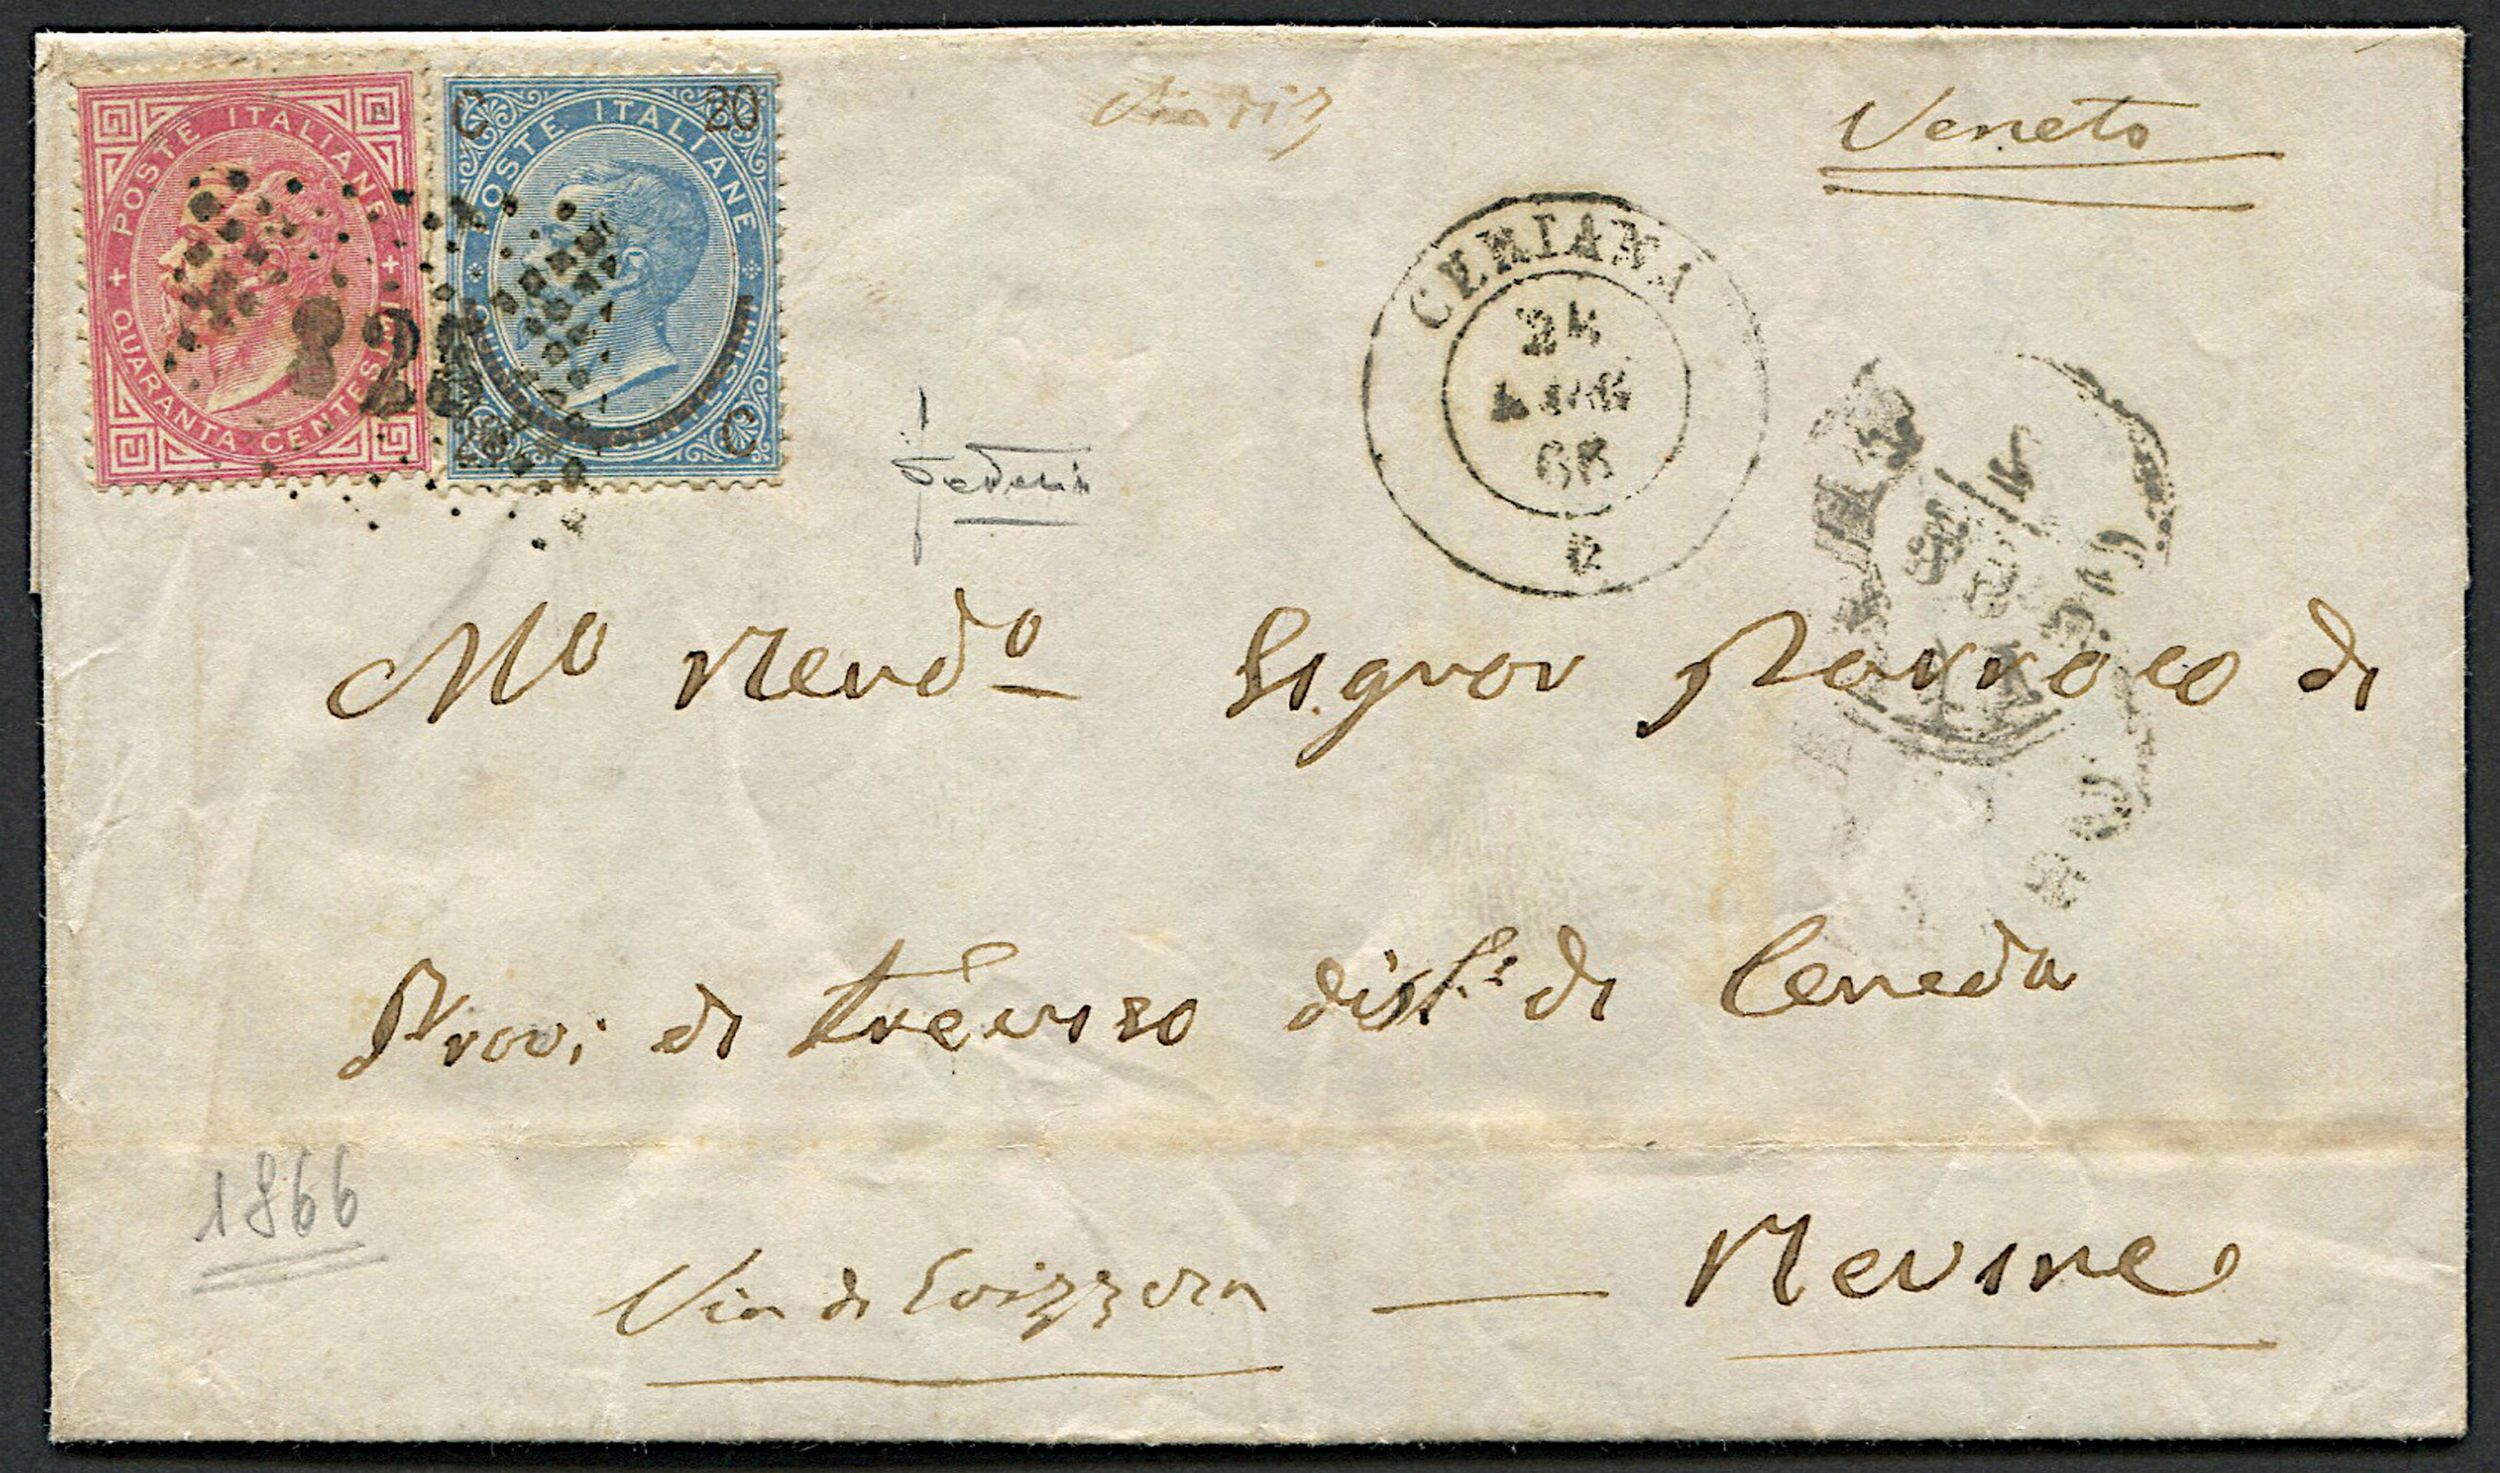 Veneto
POSTE ITALIANE
QUARANTA CENTESIMI
C 20
POSTE ITALIANE
QUINDICI CENTESIMI
20 C
CERIANA
24
66
Mo Rendo Signor Parroco di
Provi di Treviso disto di Ceneda
1866
Via di Svizzera — Revine